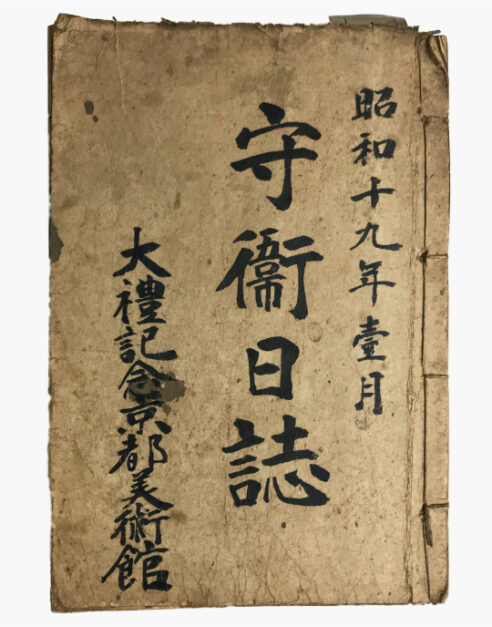 昭和十九年壹月
守衞日誌
大禮記念京都美術館